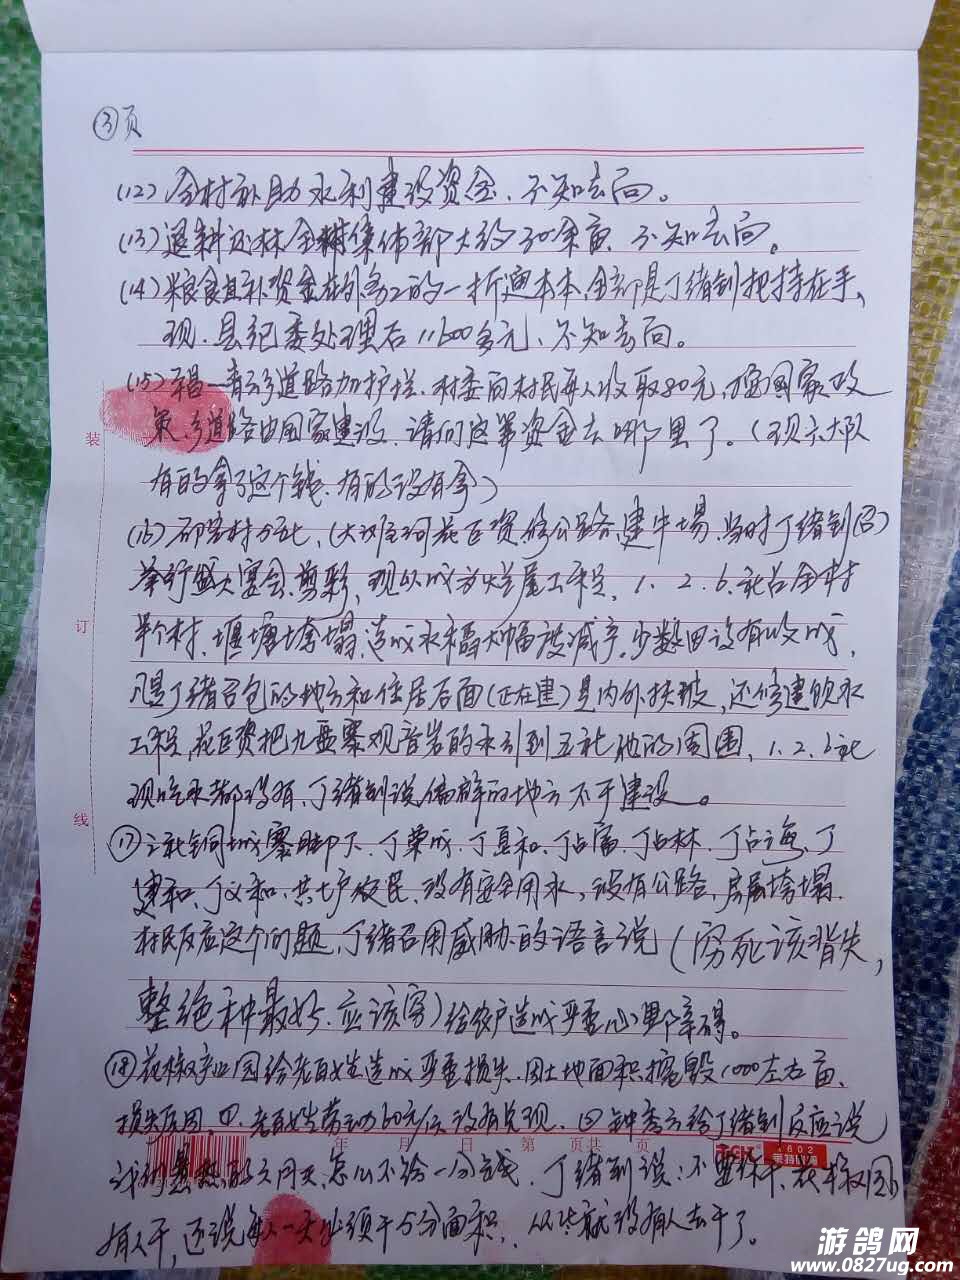 ③页
(12) 全村补助水利建设资金、不知去向。
(13) 退耕还林全村集体部大约30余亩、不知去向。
(14) 粮食直补资金在外务工的一折通本本、全部是丁绪剑把持在手、
现、县纪委处理后11600多元、不知去向。
青云乡道路加护栏、村委向村民每人收取80元、国家政
策、乡道路由国家建设、请问这笔资金去哪里了。(现六大队
有的拿了这个钱、有的没有拿)
(16) 花巨资修公路、建牛场、当时丁绪剑
举行盛大宴会、剪彩、现以成为烂尾工程、1.2.6.社占全村
半个村、堰塘垮塌、造成水稻大幅度减产、少数田没有收成、
凡是丁绪召包的地方和住居后面(正在建)是内外扶坡、还修建饮水
工程、花巨资把九盘寨观音岩的水引到五社他的周围、1.2.6社
现吃水都没有、丁绪剑说、偏僻的地方不于建设。
⑰ 社铜城寨脚下、丁荣成、丁真和、丁占富、丁占林、丁占海、丁
建和、丁义和、共七户农民、没有安全用水、没有公路、房屋垮塌、
村民反应这个问题、丁绪召用威胁的语言说(穷死该背失,
整绝种最好、应该穷)给农户造成严重心里障碍。
⑱ 花椒产业园给老百姓造成严重损失、田土地面积搞毁1000左右亩、
老百姓劳动60元/天没有兑现、给丁绪剑反应说
怎么不给一分钱、丁绪剑说:不要你干、花椒园
有人干,还说每人一天必须干5分面积、从此就没有人去干了。
装
订
线
年 月 日 第 页共 页
游鸽网
www.0827ug.com